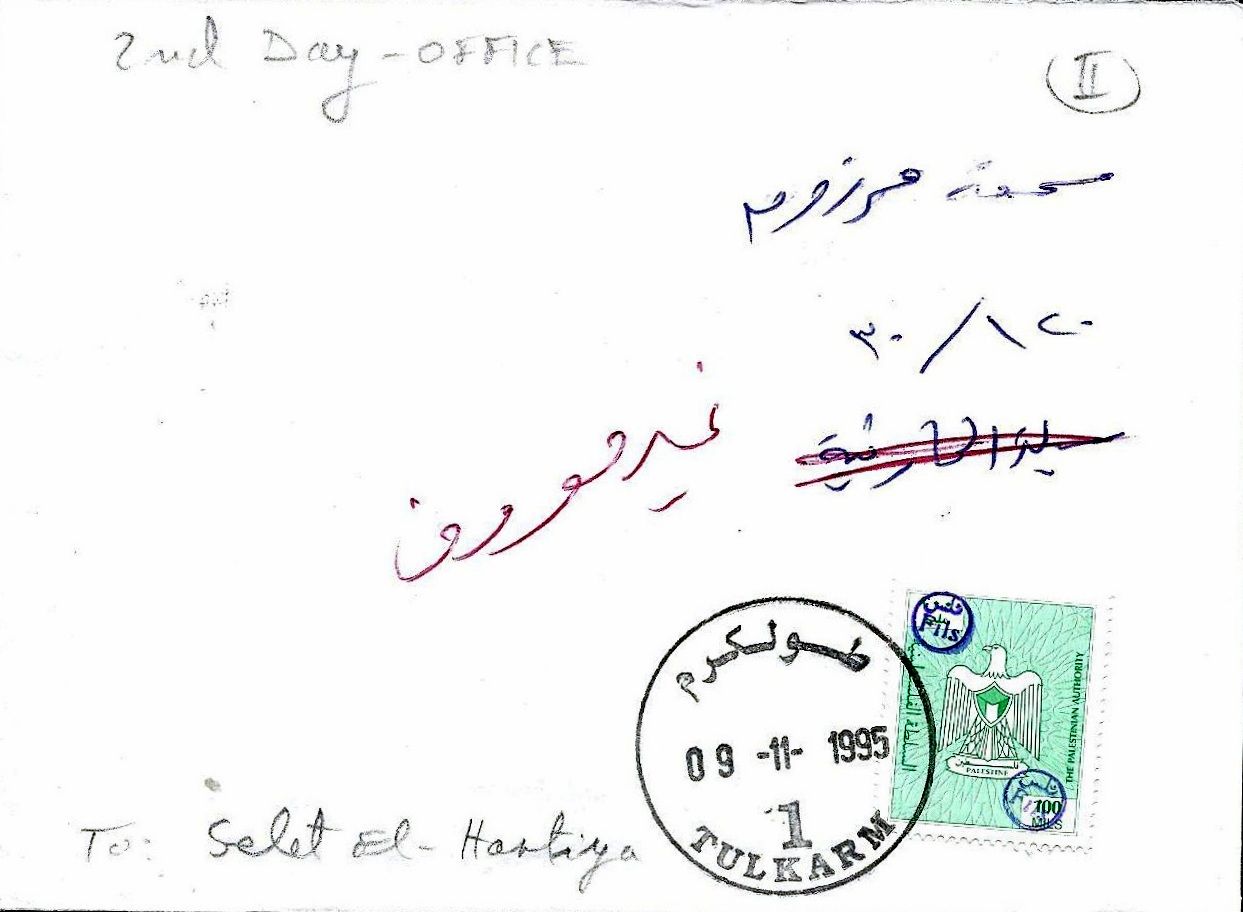 2nd Day - OFFICE
II
٣٠/١٢٠
غير معروف
طولكرم
09 -11- 1995
1
TULKARM
فلس
Fils
PALESTINE
THE PALESTINIAN AUTHORITY
100
MILS
To: Selet El-Hartiya